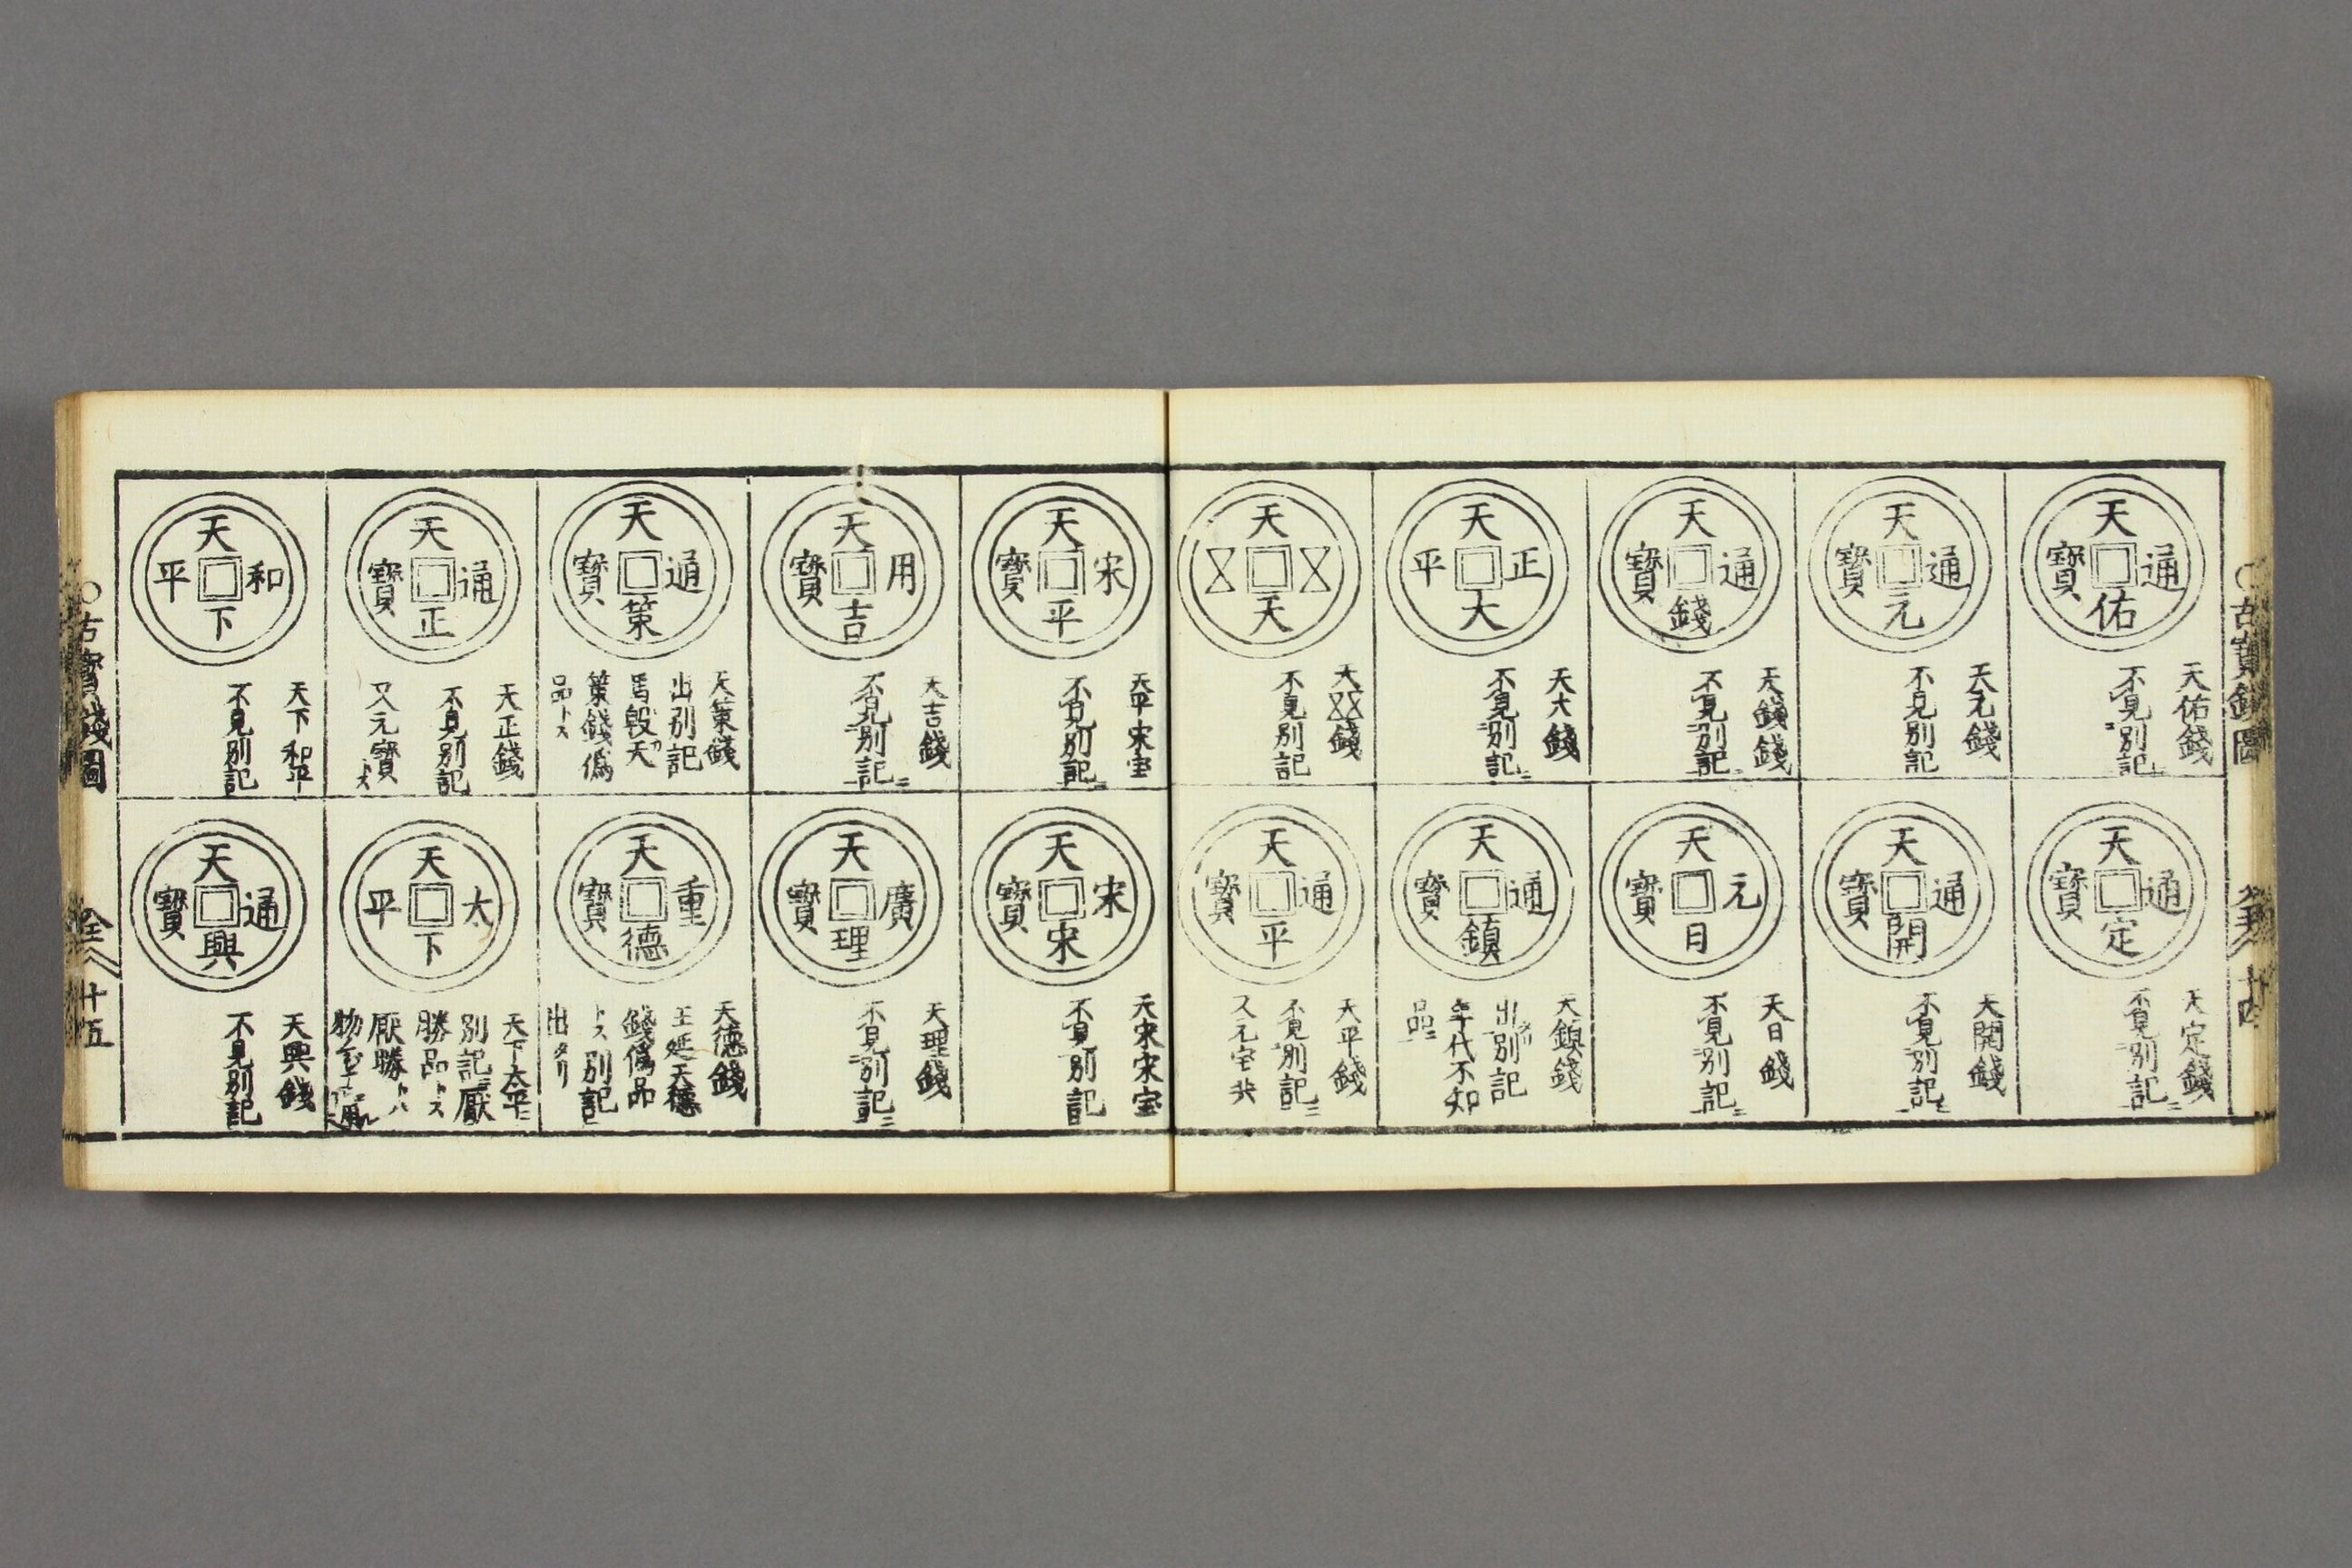 古寳錢圖
十四
天佑通寳
天佑錢
不見別記ニ
天定通寳
天定錢
不見別記ニ
天元通寳
天元錢
不見別記
天開通寳
天開錢
不見別記ニ
天錢通寳
天錢錢
不見別記ニ
天日元寳
天日錢
不見別記ニ
天大正平
天大錢
不見別記ニ
天鎮通寳
天鎮錢
出別記
年代不知
品ニ
天天
天錢
不見別記
天平通寳
天平錢
不見別記ニ
又元宝
天平宋寳
天平宋宝
不見別記ニ
天宋宋寳
天宋宋宝
不見別記
天吉用寳
天吉錢
不見別記ニ
天理廣寳
天理錢
不見別記ニ
天策通寳
天策錢
出別記
馬殷天
策錢偽
品トス
天德重寳
天德錢
王延天德
錢偽品
トス別記
出タリ
天正通寳
天正錢
不見別記
又元寳
天下太平
天下太平
別記ニ厭
勝品トス
厭勝トハ
天下和平
天下和平
不見別記
天興通寳
天興錢
不見別記
古寳錢圖
全
十五